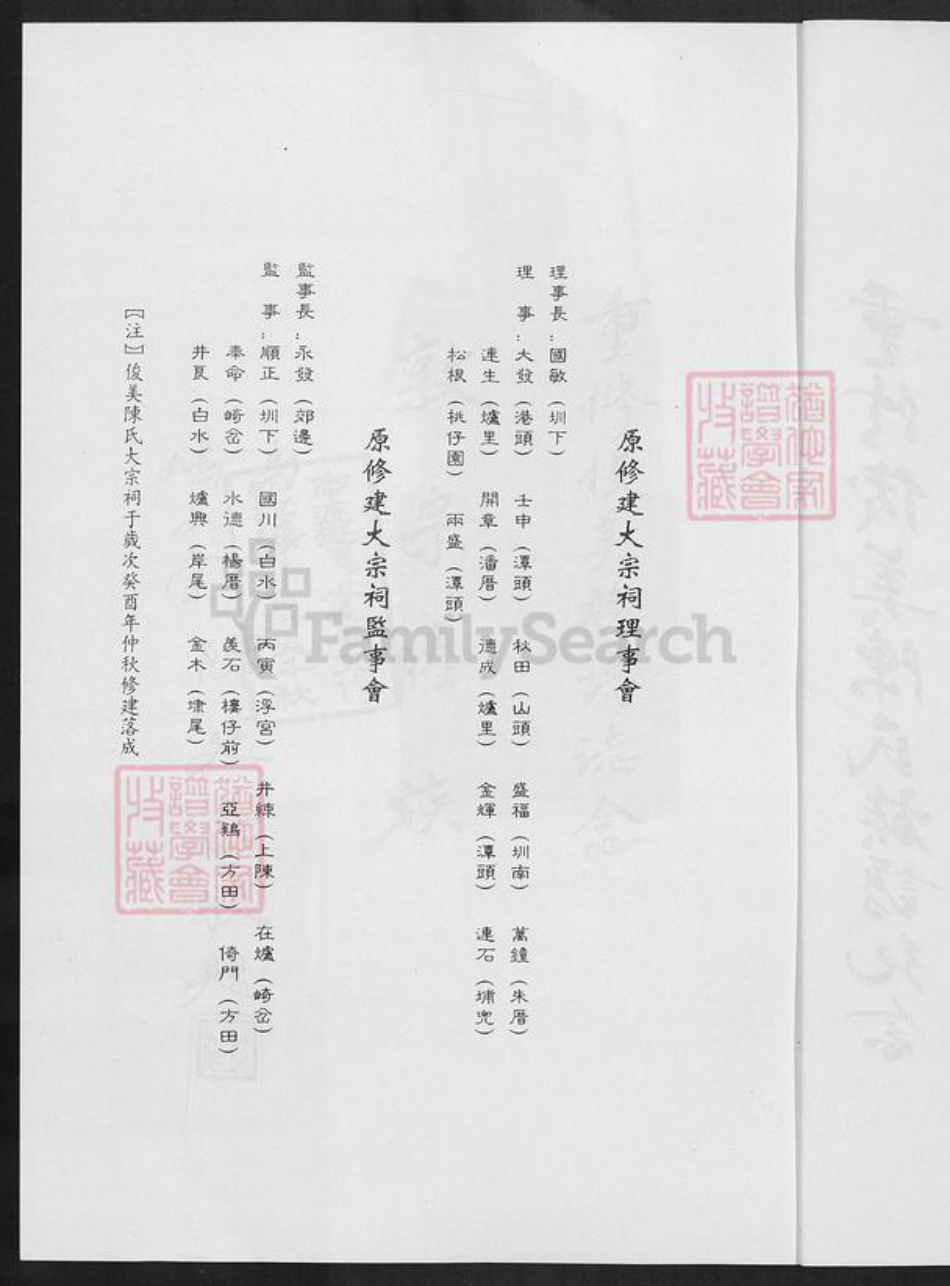 原修建大宗祠理事會
理事長:國敏(圳下)
理 事:大發(港頭) 壬申(潭頭) 秋田(山頭) 盛福(圳南) 萬鐘(朱厝)
連生(爐里) 開章(潘厝) 德成(爐里) 金輝(潭頭) 連石(埔兜)
松根(桃仔園) 兩盛(潭頭)
原修建大宗祠監事會
監事長:永發(郊邊)
監 事:順正(圳下) 國川(白水) 丙寅(浮宮) 井練(上陳) 在爐(崎岔)
奉命(崎岔) 水德(楊厝) 羨石(樓仔前) 亞鷄(方田) 倚門(方田)
井艮(白水) 爐興(岸尾) 金木(埭尾)
【注】俊美陳氏大宗祠于歲次癸酉年仲秋修建落成
譜學會
收藏
譜學會
收藏
FamilySearch